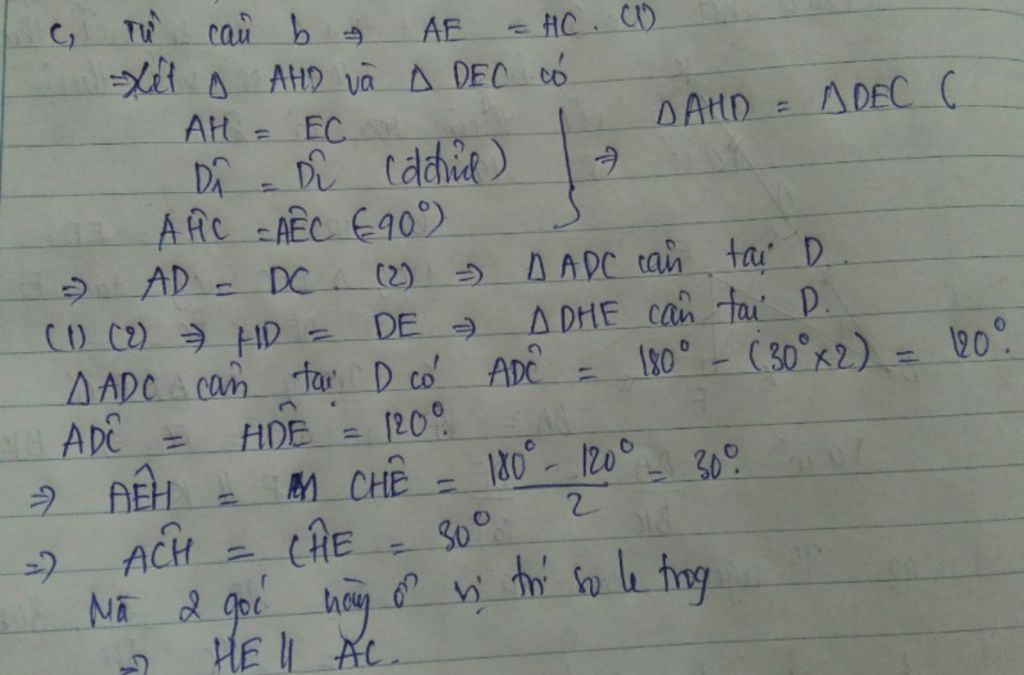 c, Từ câu b ⇒ AE = HC. (1)
⇒ Xét Δ AHD và Δ DEC có
AH = EC
D̂₁ = D̂₂ (đđỉnh) } ⇒ ΔAHD = ΔDEC (
AĤC = AÊC (=90°)
⇒ AD = DC. (2) ⇒ ΔADC cân tại D.
(1) (2) ⇒ HD = DE ⇒ ΔDHE cân tại D.
ΔADC cân tại D có AD̂C = 180° - (30°×2) = 120°.
AD̂C = HD̂E = 120°.
⇒ AÊH = CĤE = (180° - 120°)/2 = 30°.
⇒ AĈH = CĤE = 30°
Mà 2 góc này ở vị trí so le trog
⇒ HE || AC.